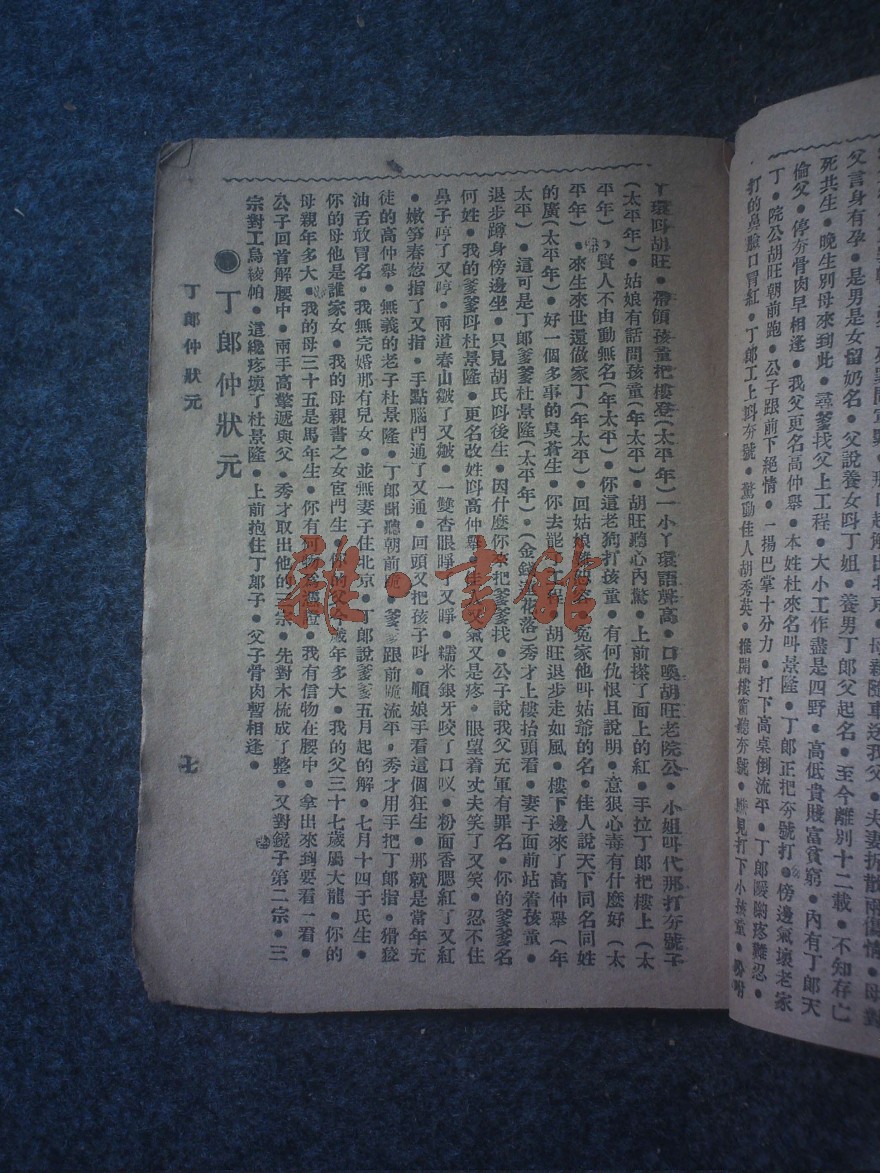 父言身有孕•是男是女留奶名•父說養女呌丁姐•養男丁郎父起名•至今離別十二載•不知存亡
死共生•晚生別母來到此•尋爹找父上工程•大小工作盡是四野•高低貴賤富貧窮•內有丁郎天
偷父•停夯骨肉早相逢•我父更名高仲舉•本姓杜來名叫景隆•丁郎正把夯號打•傍邊氣壞老家
丁•院公胡旺朝前跑•公子跟前下絕情•一揚巴掌十分力•打下高桌倒流平•丁郎
打的鼻臉口冒紅•丁郎工上呌夯號•驚動佳人胡秀英•推開樓窗聽夯號•
丫環呌胡旺•帶領孩童把樓登(太平年)一小丫環語聲高•口喚胡旺老院公•小姐叫代那打夯號子
(太平年)•姑娘有話問孩童(年太平)•胡旺聽心內驚•上前搽了面上的紅•手拉丁郎把樓上(太
平年)•賢人不由動無名(年太平)•你這老狗打孩童•有何仇恨且說明•意狠心毒有什麼好(太
平年)•來生來世還做家丁(年太平)•回姑娘•冤家他叫姑爺的名•佳人說天下同名同姓
的廣(太平年)•好一個多事的臭蒼生•你去罷工程•胡旺退步走如風•樓下邊來了高仲舉(年
太平)•這可是丁郎爹爹杜景隆(太平年)•(金錢蓮花落)秀才上樓抬頭看•妻子面前站着孩童•
退步蹲身傍邊坐•只見胡氏呌後生•因什麼你來把爹爹找•公子說我父充軍有罪名•你的爹爹名
何姓•我的爹爹呌杜景隆•更名改姓呌高仲舉•氣又是疼•眼望着丈夫笑了又笑•忍不住
鼻子哼了又哼•兩道春山皺了又皺•一雙杏眼睜又睜•糯米銀牙咬了口叹•粉面香腮紅了又紅
•嫩笋春葱指了又指•手點腦門通了又通•回頭又把孩子呌•順娘手看這個狂生•那就是當年充
徒的高仲舉•無義的老子杜景隆•丁郎聞聽朝前跪•爹爹跟前跪流平•秀才用手把丁郎指•猾狡
油舌敢冒名•我無完婚那有兒女•並無妻子住北京•丁郎說爹爹五月起的解•七月十四子民生•
你的母他是誰家女•我的母親書之女宦門生•你的父今歲年多大•我的父三十七歲屬大龍•你的
母親年多大•我的母三十五是馬年生•你有何物為憑證•我有信物在腰中•拿出來到要看一看•
公子回首解腰中•兩手高擎遞與父•秀才取出他的三宗•先對木梳成了整•又對鏡子第二宗•三
宗對工烏綾帕•這纔疼壞了杜景隆•上前抱住丁郎子•父子骨肉暫相逢•
●丁郎仲狀元
丁郎仲狀元 七
雜·書館